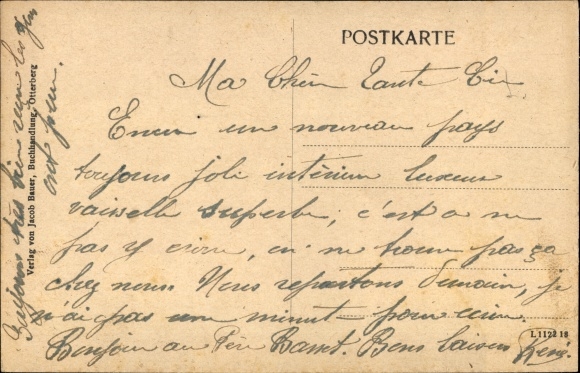 POSTKARTE
Ma Chère Tante
Encore un nouveau pays
toujours joli intérieur luxueux
vaisselle superbe, c'est a ne
pas y croire, on ne trouve pas ça
chez nous. Nous repartons demain, je
n'ai pas une minute pour écrire.
Bonjour au Père Bons baisers René
L 1122 18
Verlag von Jacob Bauer, Buchhandlung, Otterberg
Toujours très bien reçu les